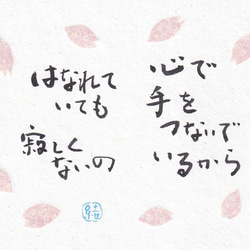 心で
手を
つないで
いるから
はなれて
いても
寂しく
ないの